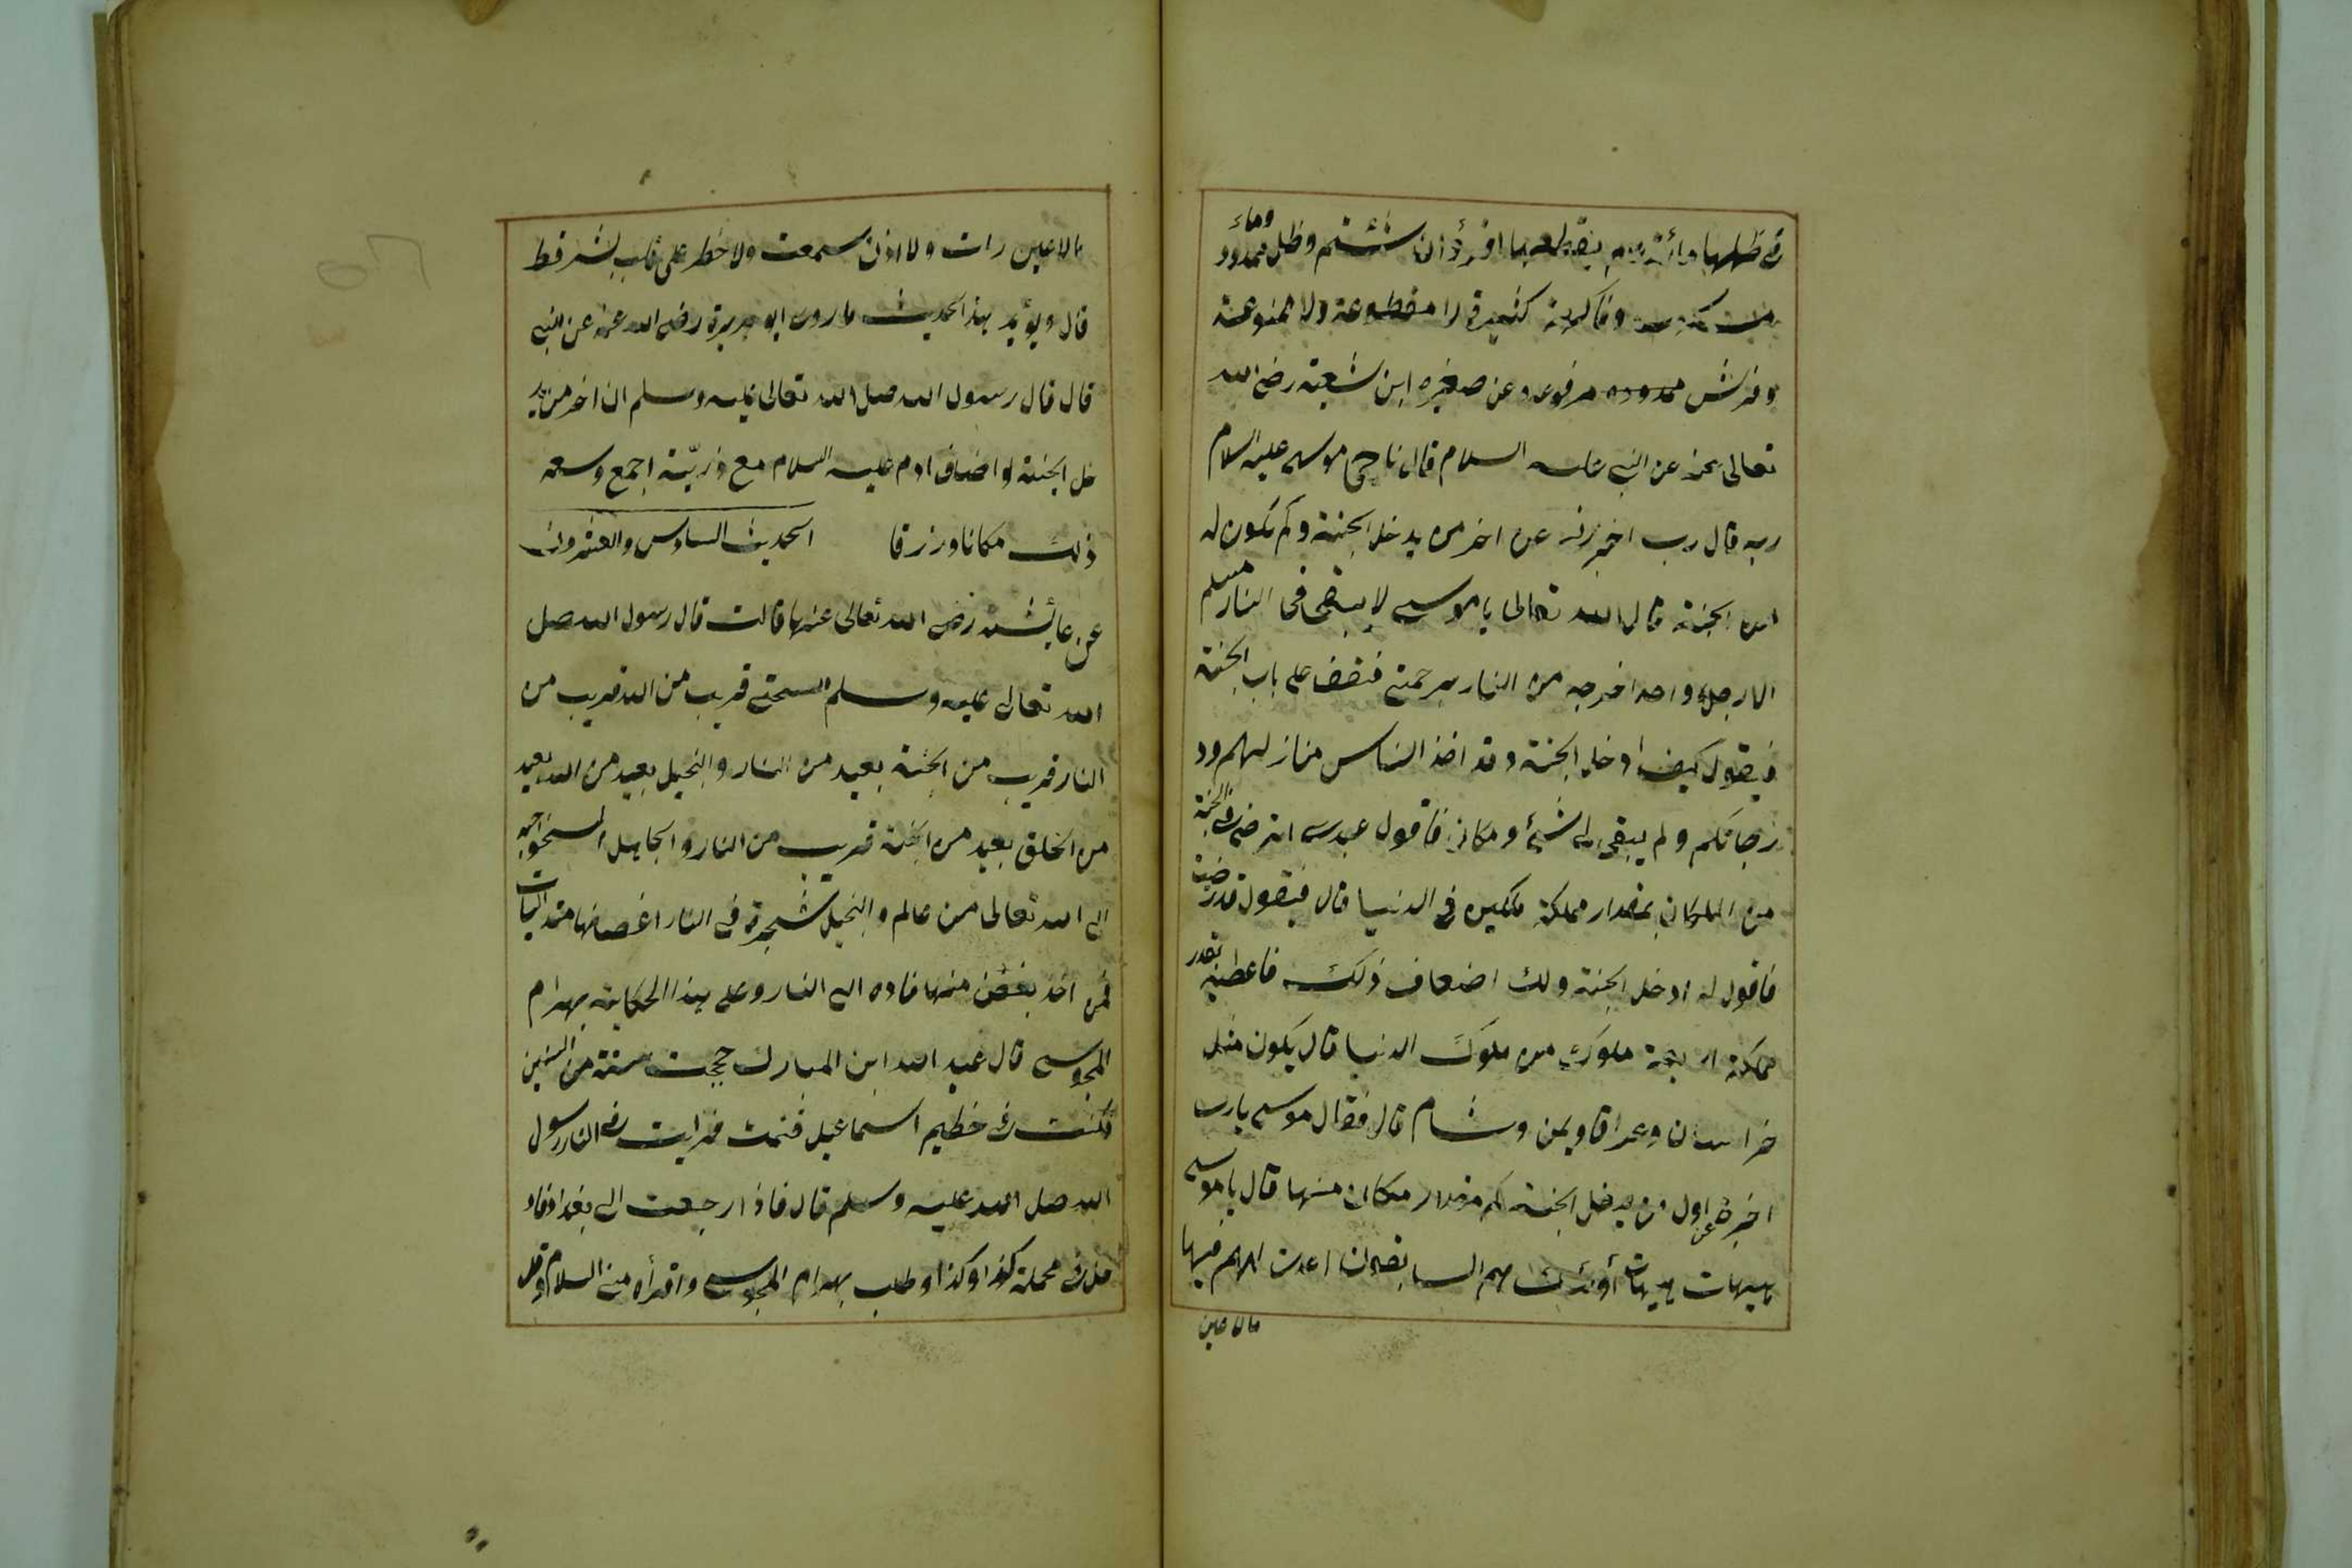 في ظلها مائة عام يقطعها اقرؤا ان شئتم وظل ممدود وماء
مسكوب وفاكهة كثيرة لا مقطوعة ولا ممنوعة
وفرش ممدوده مرفوعه وعن صغيره ابن شعبة رضى الله
تعالى عنه عن النبي عليه السلام قال ناجى موسى عليه السلام
ربه قال رب اخبرني عن اخر من يدخل الجنة وكم تكون له
من الجنة قال الله تعالى يا موسى لا يبقى في النار مسلم
الا رجل واحد اخرجه من النار برحمتى فتقف على باب الجنة
فيقول كيف ادخل الجنة وقد اخذ الناس منازلهم ود
رجاتكم ولم يبقى لى شيئ ومكان فاقول عبدى اترضى في الجنة
من المكان بمقدار مملكة ملكين في الدنيا قال فيقول قد رضيت
فاقول له ادخل الجنة ولك اضعاف ذلك فاعطيه بقدر
مملكة اربعة ملوك من ملوك الدنيا قال يكون مثل
خراسان وعراقا ويمن وشام قال فقال موسى يا رب
اخبرنى عن اول من يدخل الجنة كم مقدار مكان منها قال يا موسى
هيهات هيهات أولئك هم السابقون اعدت لهم فيها
مالا عين
مالا عين رات ولا اذن سمعت ولا خطر على قلب بشر قط
قال ويؤيد هذا الحديث ما روى ابو هريرة رضى الله عنه عن النبي
قال قال رسول الله صلى الله تعالى عليه وسلم ان اخر من يد
خل الجنة لو اضاف ادم عليه السلام مع ذريّته اجمع وسعه
ذلك مكانا ورزقا الحديث السادس والعشرون
عن عائشة رضى الله تعالى عنها قالت قال رسول الله صلى
الله تعالى عليه وسلم السخى قريب من الله قريب من
النار قريب من الجنة بعيد من النار والبخيل بعيد من الله بعيد
من الخلق بعيد من الجنة قريب من النار والجاهل السخى احب
الى الله تعالى من عالم والبخيل شجرة في النار اغصانها متدليات
فمن اخذ بغصن منها قاده الى النار وعلى هذا الحكاية بهرام
المجوسى قال عبد الله ابن المبارك حججت سنة من السنين
فكنت في خطيم اسماعيل فنمت فرايت في النار رسول
الله صلى الله عليه وسلم قال فاذا رجعت الى بغداد فاد
خل في محلة كذا وكذا وطلب بهرام المجوسى واقرأه منى السلام وقل